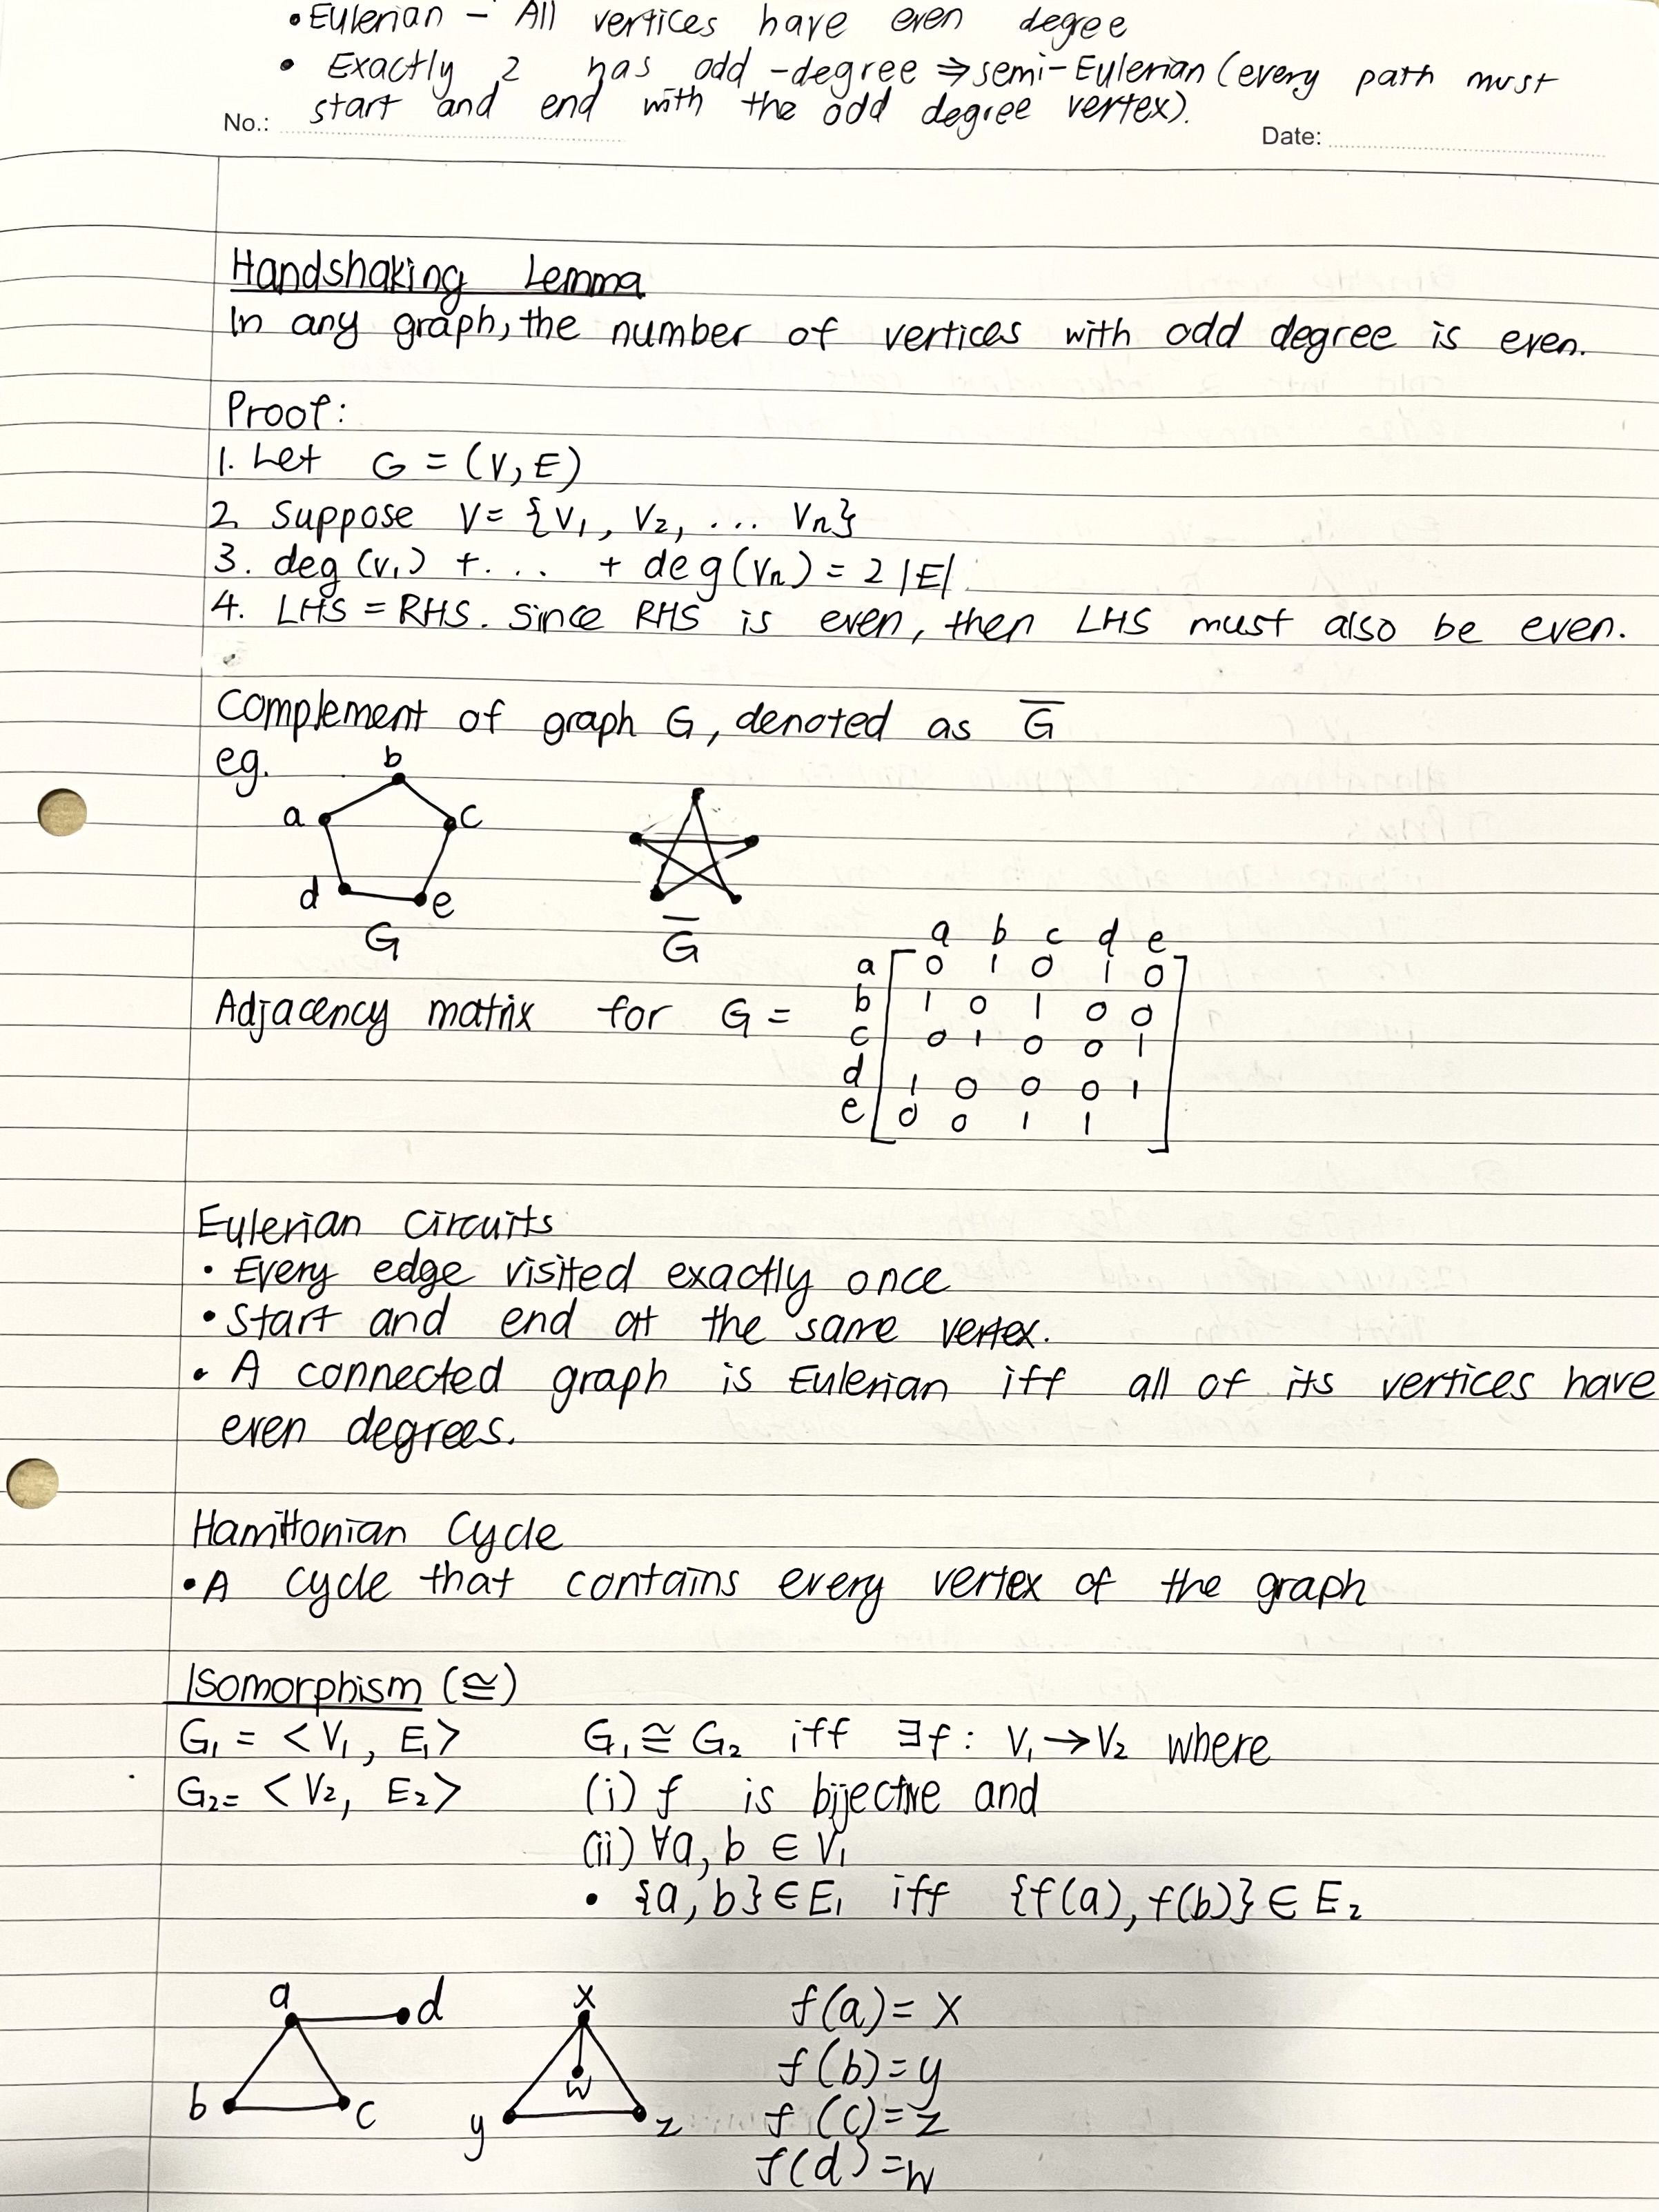 • Eulerian - All vertices have even degree
• Exactly 2 has odd-degree ⇒ semi-Eulerian (every path must
start and end with the odd degree vertex).
No.:
Date:
Handshaking Lemma
In any graph, the number of vertices with odd degree is even.
Proof:
1. Let G = (V, E)
2. Suppose V = {V₁, V₂, ... Vₙ}
3. deg (V₁) + ... + deg (Vₙ) = 2 |E|
4. LHS = RHS. Since RHS is even, then LHS must also be even.
Complement of graph G, denoted as G̅
eg.
b
a c
d e
G G̅
a b c d e
a 0 1 0 1 0
Adjacency matrix for G = b 1 0 1 0 0
c 0 1 0 0 1
d 1 0 0 0 1
e 0 0 1 1
Eulerian Circuits
• Every edge visited exactly once
• Start and end at the same vertex.
• A connected graph is Eulerian iff all of its vertices have
even degrees.
Hamiltonian Cycle
• A cycle that contains every vertex of the graph
Isomorphism (≅)
G₁ = <V₁, E₁> G₁ ≅ G₂ iff ∃f: V₁ → V₂ where
G₂ = <V₂, E₂> (i) f is bijective and
(ii) ∀a, b ∈ V₁
• {a, b} ∈ E₁ iff {f(a), f(b)} ∈ E₂
a d x f(a) = x
w f(b) = y
b c y z f(c) = z
f(d) = w